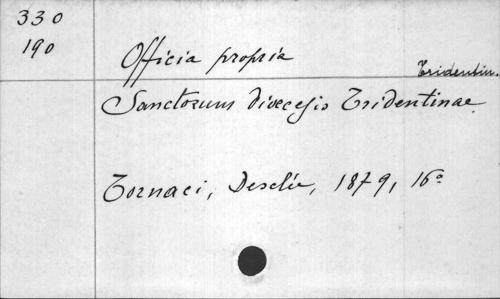 330
190
Officia propria
Tridentin.
Sanctorum dioecesis Tridentinae
Tornaci, Desclée, 1879, 16°